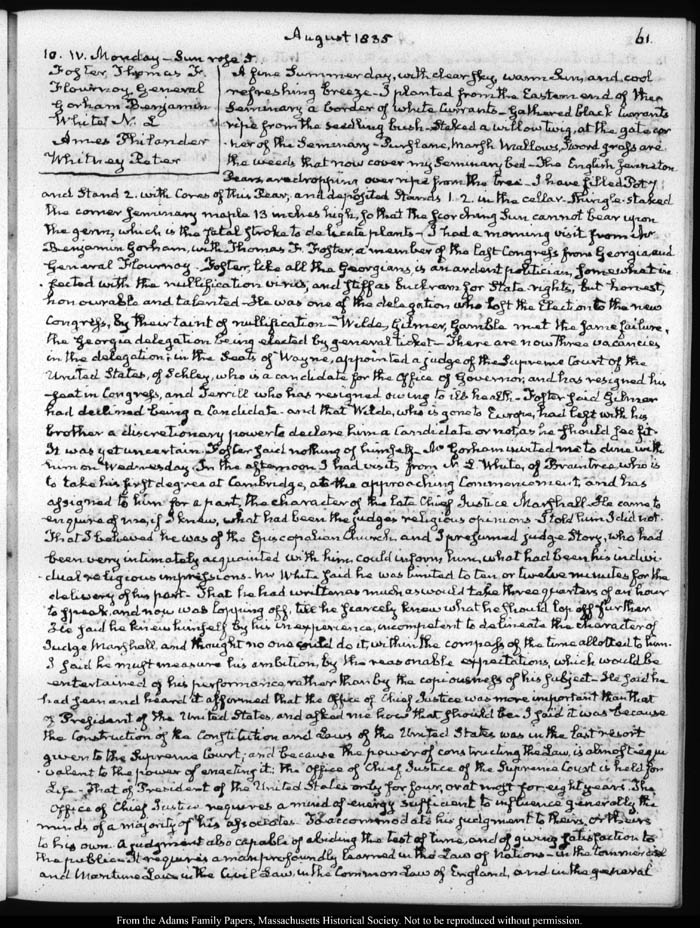 August 1835
61.
10. IV. Monday - Sun rose 5.
Foster, Thomas F.
Flournoy, General
Gorham Benjamin
White N. L
Ames Philander
Whitney Peter
A fine Summer day, with clear sky, warm Sun, and cool
refreshing breeze - I planted from the Eastern end of the
Seminary a border of white Currants - Gathered black Currants
ripe from the seedling bush - Staked a willow twig, at the gate cor
ner of the Seminary - Purslane, Marsh Mallows, Sword grass are
the weeds that now cover my Seminary bed - The English
Pears, are dropping over ripe from the tree - I have filled Pot 7
and Stand 2. with Cores of this Pear, and deposited Stands 1. 2. in the cellar. Shingle-staked
the corner Seminary maple 13 inches high, so that the scorching Sun cannot bear upon
the germ, which is the fatal stroke to delicate plants - I had a morning visit from Mr
Benjamin Gorham, with Thomas F. Foster, a member of the last Congress from Georgia, and
General Flournoy - Foster, like all the Georgians, is an ardent politician, somewhat in
fected with the nullification virus, and stiff as Buckram for State rights, but honest,
honourable and talented - He was one of the delegation who lost the Election to the new
Congress, by their taint of nullification - Wilde, Gilmer, Gamble met the same failure,
the Georgia delegation being elected by general ticket - There are now three vacancies
in the delegation; in the Seats of Wayne, appointed a judge of the Supreme Court of the
United States, of Schley, who is a candidate for the Office of Governor, and has resigned his
seat in Congress, and Terrill who has resigned owing to ill health. - Foster said Gilmer
had declined being a Candidate - and that Wilde, who is gone to Europe, had left with his
brother a discretionary power to declare him a Candidate or not, as he should see fit -
It was yet uncertain. Foster said nothing of himself - Mr Gorham invited me to dine with
him on Wednesday. In the afternoon I had visits from N. L. White, of Braintree, who is
to take his first degree at Cambridge, at the approaching Commencement, and has
assigned to him for a part, the character of the late Chief Justice Marshall. He came to
enquire of me, if I knew, what had been the judges religious opinions. I told him I did not.
That I believed he was of the Episcopalian Church, and I presumed judge Story, who had
been very intimately acquainted with him, could inform him, what had been his indivi
dual religious impressions. Mr White said he was limited to ten or twelve minutes for the
delivery of his part - That he had written as much as would take three quarters of an hour
to speak, and now was lopping off, till he scarcely knew what he should lop off further
He said he knew himself by his inexperience, incompetent to delineate the character of
Judge Marshall, and thought no one could do it, within the compass of the time allotted to him.
I said he must measure his ambition, by the reasonable expectations, which would be
entertained of his performance rather than by the copiousness of his subject - He said he
had seen and heard it affirmed that the Office of Chief Justice was more important than that
of President of the United States, and asked me how that should be. I said it was because
the Construction of the Constitution and Laws of the United States was in the last resort
given to the Supreme Court; and because the power of constructing the Law, is almost equi
valent to the power of enacting it: the Office of Chief Justice of the Supreme Court is held for
Life - That of President of the United States only for four, or at most for eight years. The
Office of Chief Justice requires a mind of energy sufficient to influence generally the
minds of a majority of his associates. To accommodate his judgment to theirs, or theirs
to his own. A judgment also capable of abiding the test of time, and of giving satisfaction to
the public - It requires a man profoundly learned in the Law of Nations - in the Commercial
and Maritime Law - in the Civil Law, in the Common Law of England, and in the general
From the Adams Family Papers, Massachusetts Historical Society. Not to be reproduced without permission.